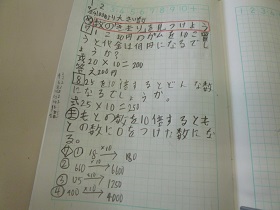 数のきまりを見つけよう
1こ20円のガムを10こ買
うと代金は何円になるでし
ょうか?
式 20×10=200
答 200円
25を10倍するとどんな数
になるでしょうか。
式 25×10=250
もとの数を10倍すると
もとの数に0をつけた数にな
る。
① 18 ×10 → 180
② 610 ×10 → 6100
③ 125 ×10 → 1250
④ 400 ×10 → 4000